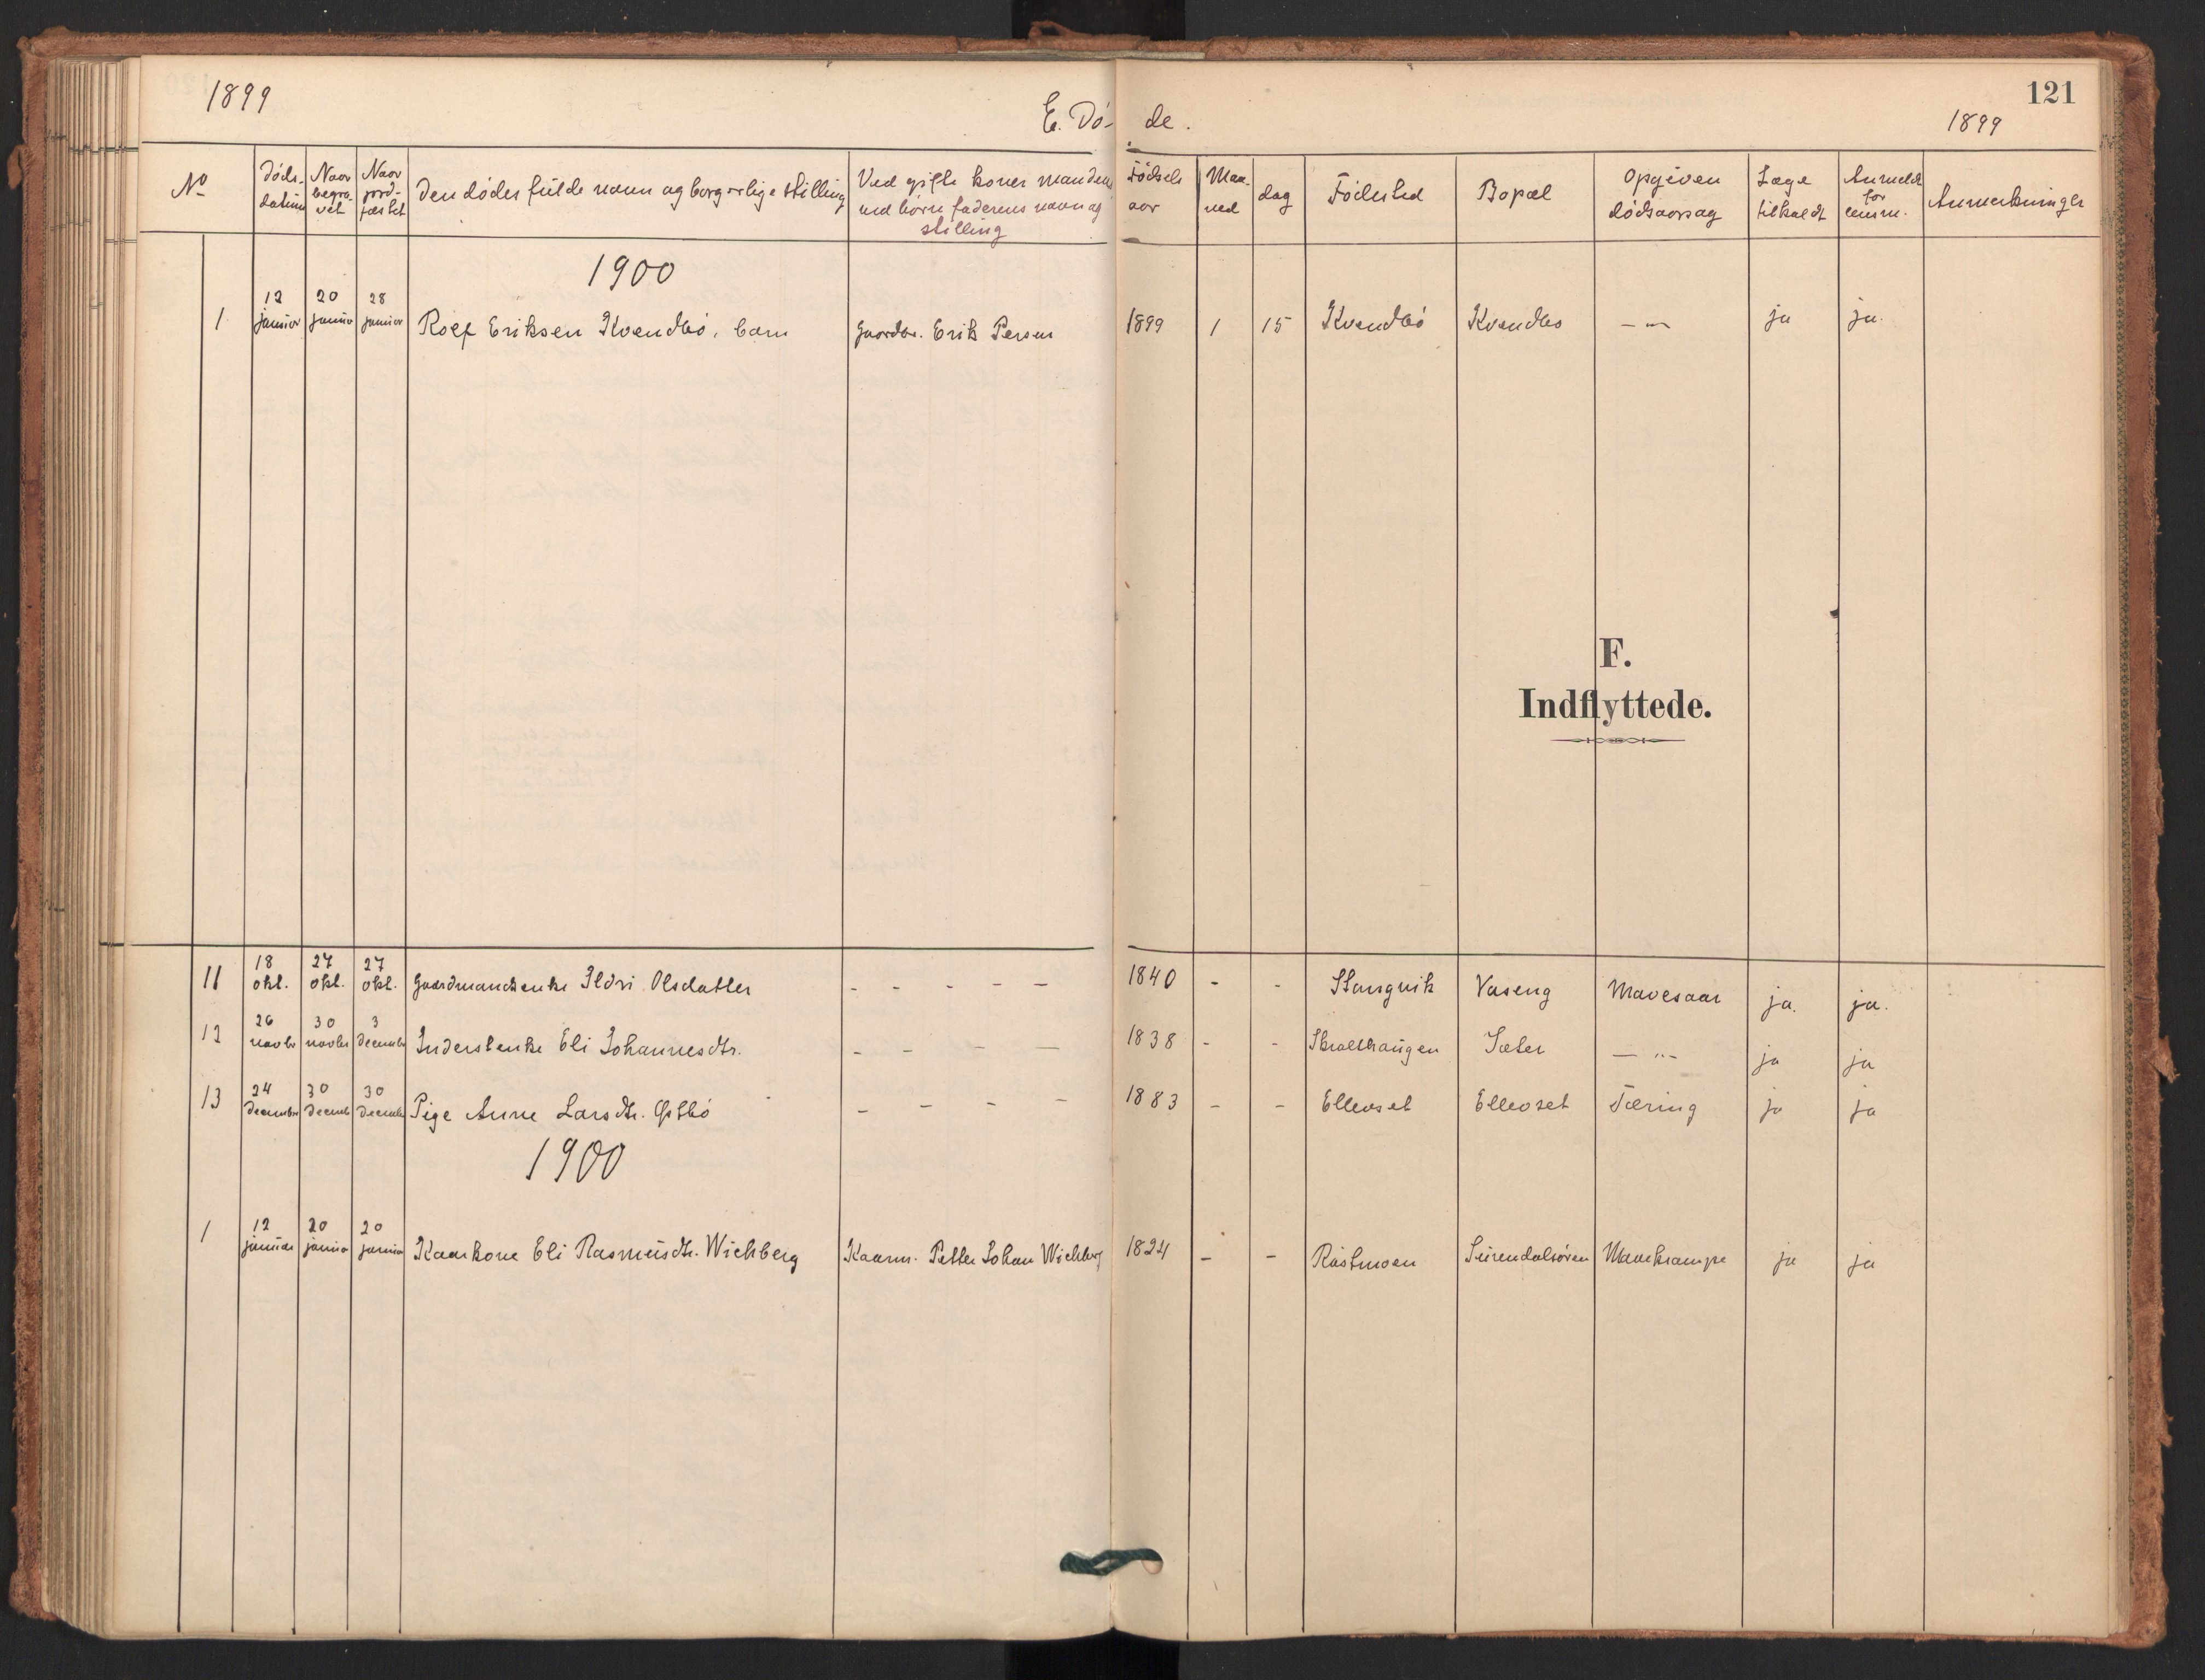 1899 E. Dö- de. 121
1899
No Döds-datum Naar begra-vet Naar jord-fæstet Den dödes fulde navn og borgerlige stilling Ved gifte koner mandens ved börn faderens navn og stilling Födsels aar Maa-ned dag Födested Bopæl Opgiven dödsaarsag Læge tilkaldt Anmeldt for lensm. Anmerkninger
1900
1 12 januar 20 januar 28 januar Rolf Eriksen Kvendbö, barn Gaardbr. Erik Persen 1899 1 15 Kvendbö Kvendbo — " — ja ja.
F.
Indflyttede.
11 18 okt. 27 okt. 27 okt. Gaardmandsenke Ildri Olsdatter - - - - - 1840 - - Stangvik Vaseng Mavesaar ja. ja.
12 26 novbr 30 novbr 3 december Inderstenke Eli Johannesdtr. - - - - 1838 - - Sæter — " — ja ja
13 24 december 30 decemb 30 decemb Pige Anne Larsdtr. Östbö - - - - 1883 - - Ellevset Ellevset Tæring ja ja
1900
1 12 januar 20 januar 20 januar Kaarkone Eli Rasmusdtr. Wichberg Kaarm. Petter Johan Wichberg 1824 - - Röstmoen Surendalsören Mavekrampe ja ja